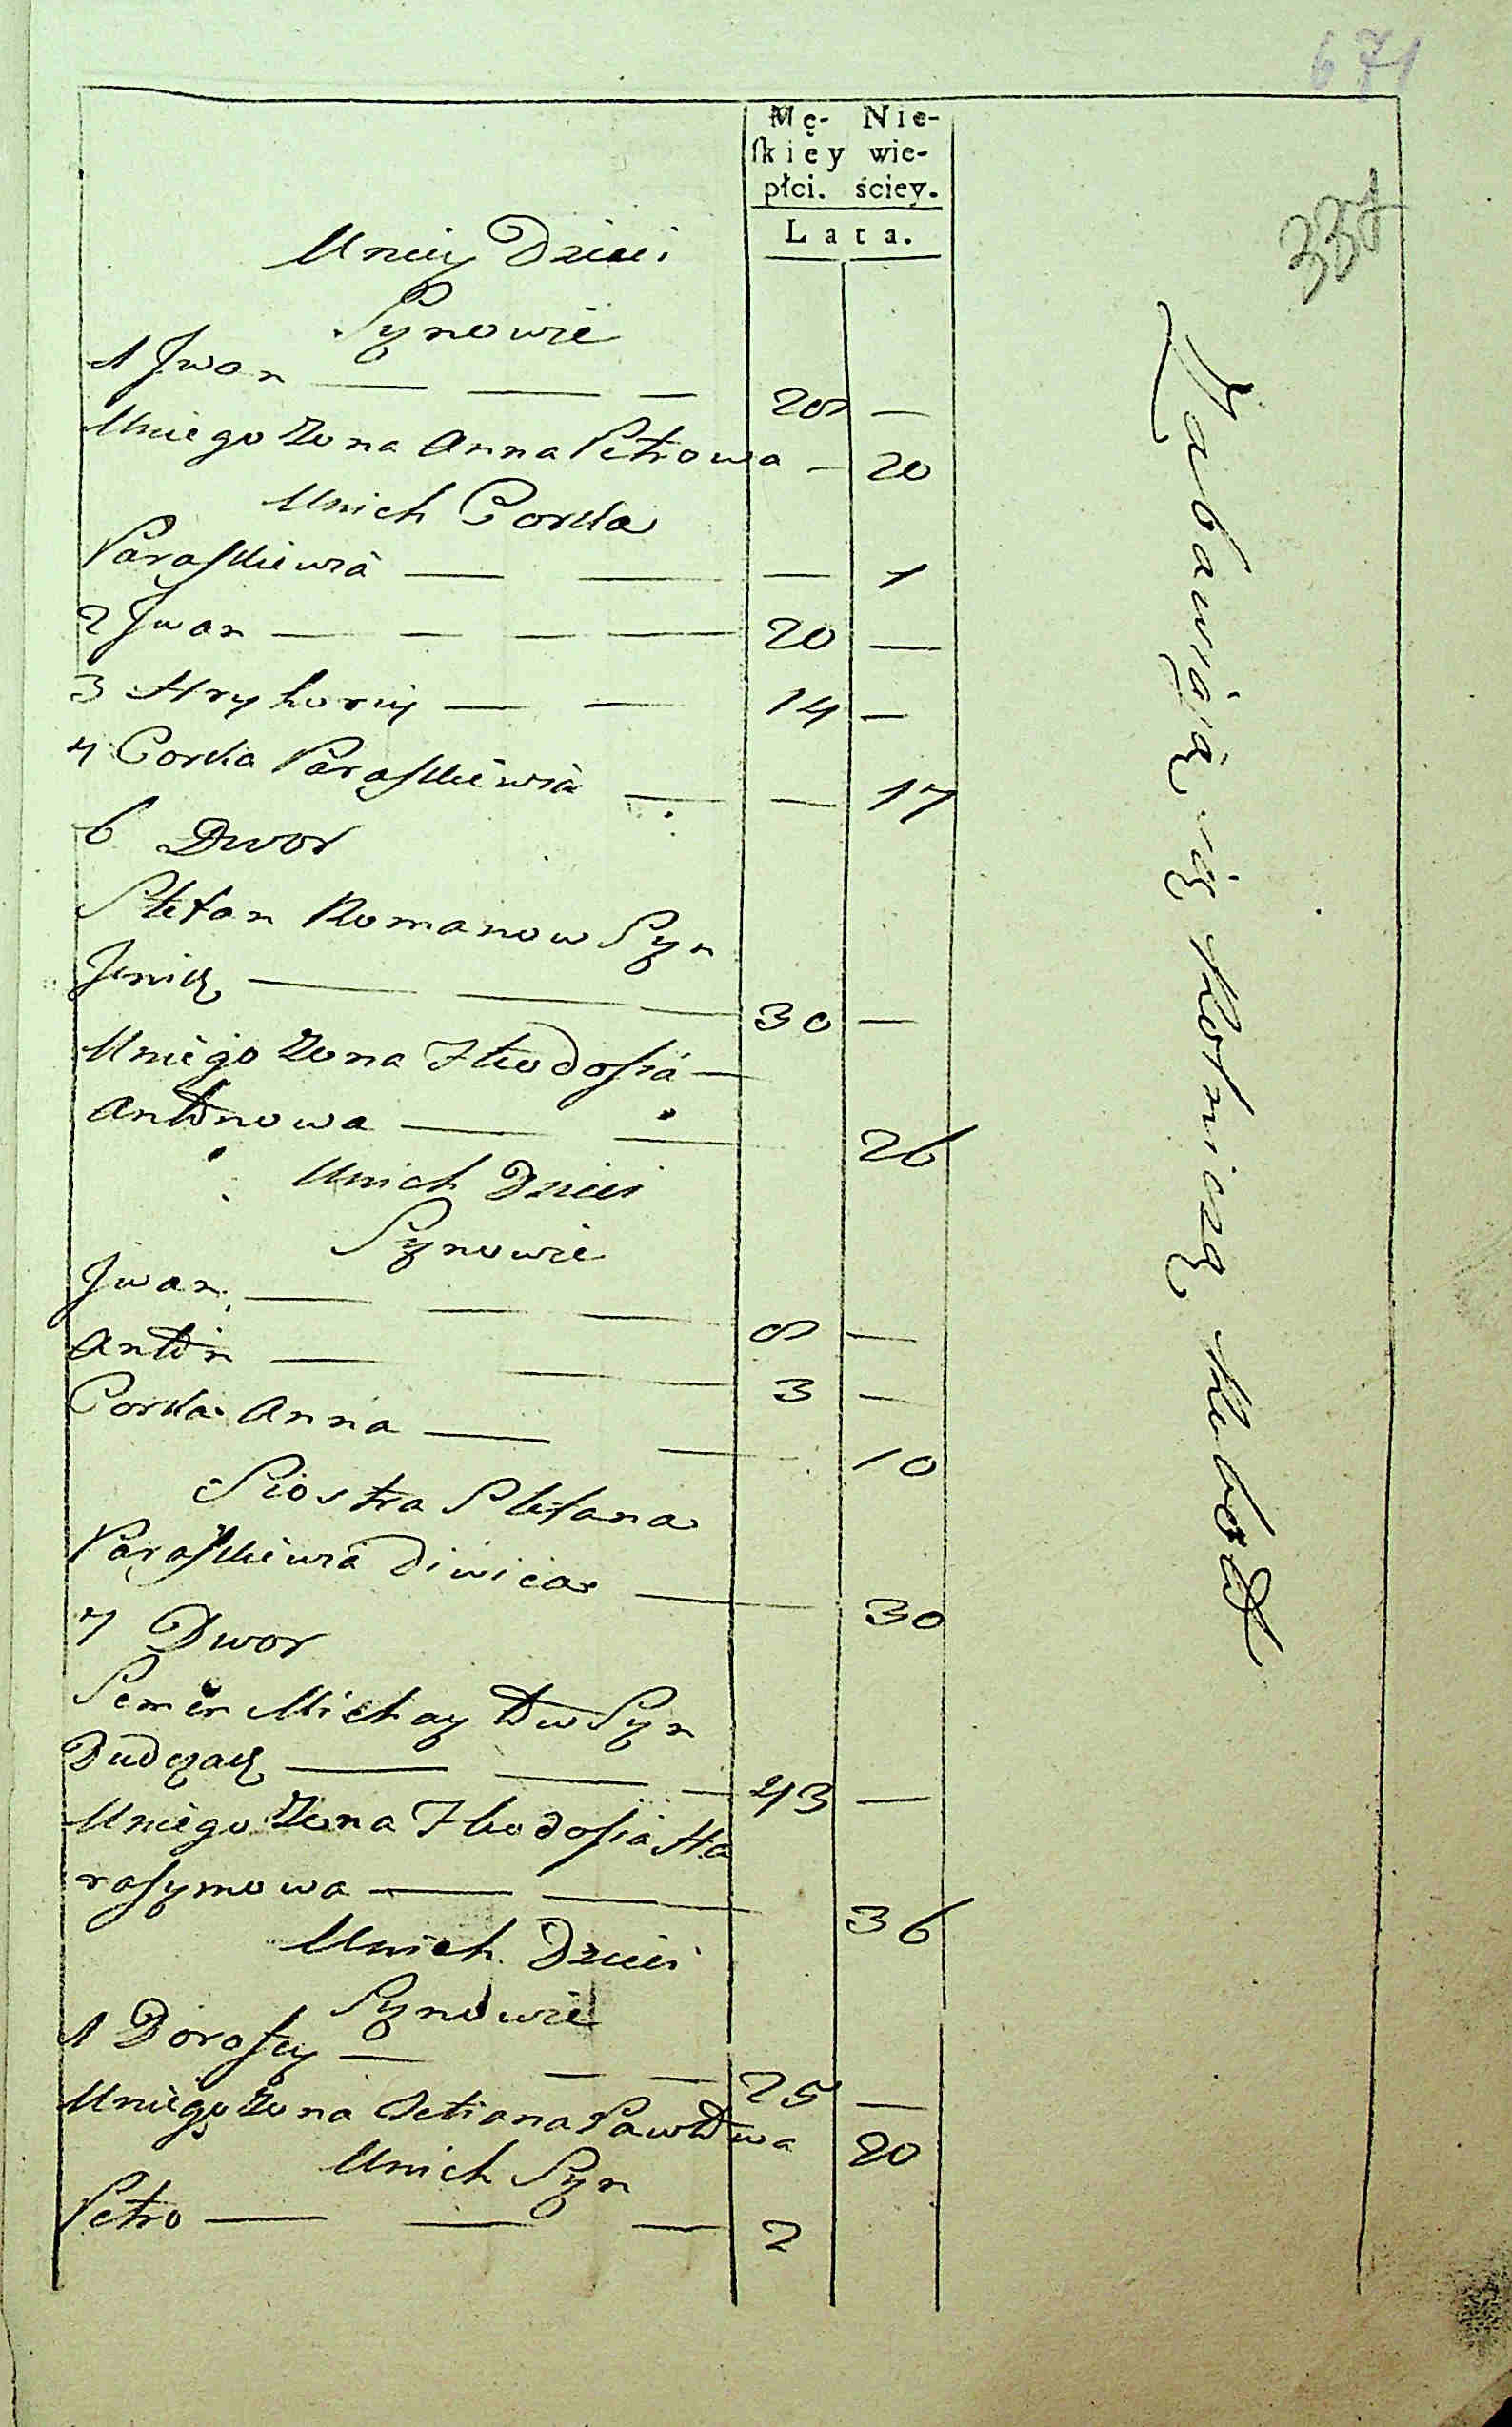 671
337
Mę- Nie-
ſkiey wie-
płci. ściey.
Lata.
Uniey Dzieci
Synowie
1 Jwan — — — 20 —
Uniego Zona Anna Petrowa — 20
Unich Corka
Paraskiewia — — — 1
2 Jwan — — — — 20 —
3 Hryhoriy — — 14 —
4 Corka Paraskiewia — — 17
6 Dwor
Stefan Romanow Syn
— — — 30 —
Uniego Zona Theodosia —
Antonowa — — 26
Unich Dzieci
Synowie
Jwan — — — 8 —
Anton — — — 3 —
Corka Anna — — 10
Siostra Stefana
Paraskiewia diwica — 30
7 Dwor
Semen Michayłow Syn
Dudczak — — — 43 —
Uniego Zona Theodosia Ha
rasymowa — — 36
Unich Dzieci
Synowie
1 Dorofey — — — 25 —
Uniego Zona Tetiana Pawłowa 20
Unich Syn
Petro — — — 2
Zabawiaią się Rolniczą Robotą